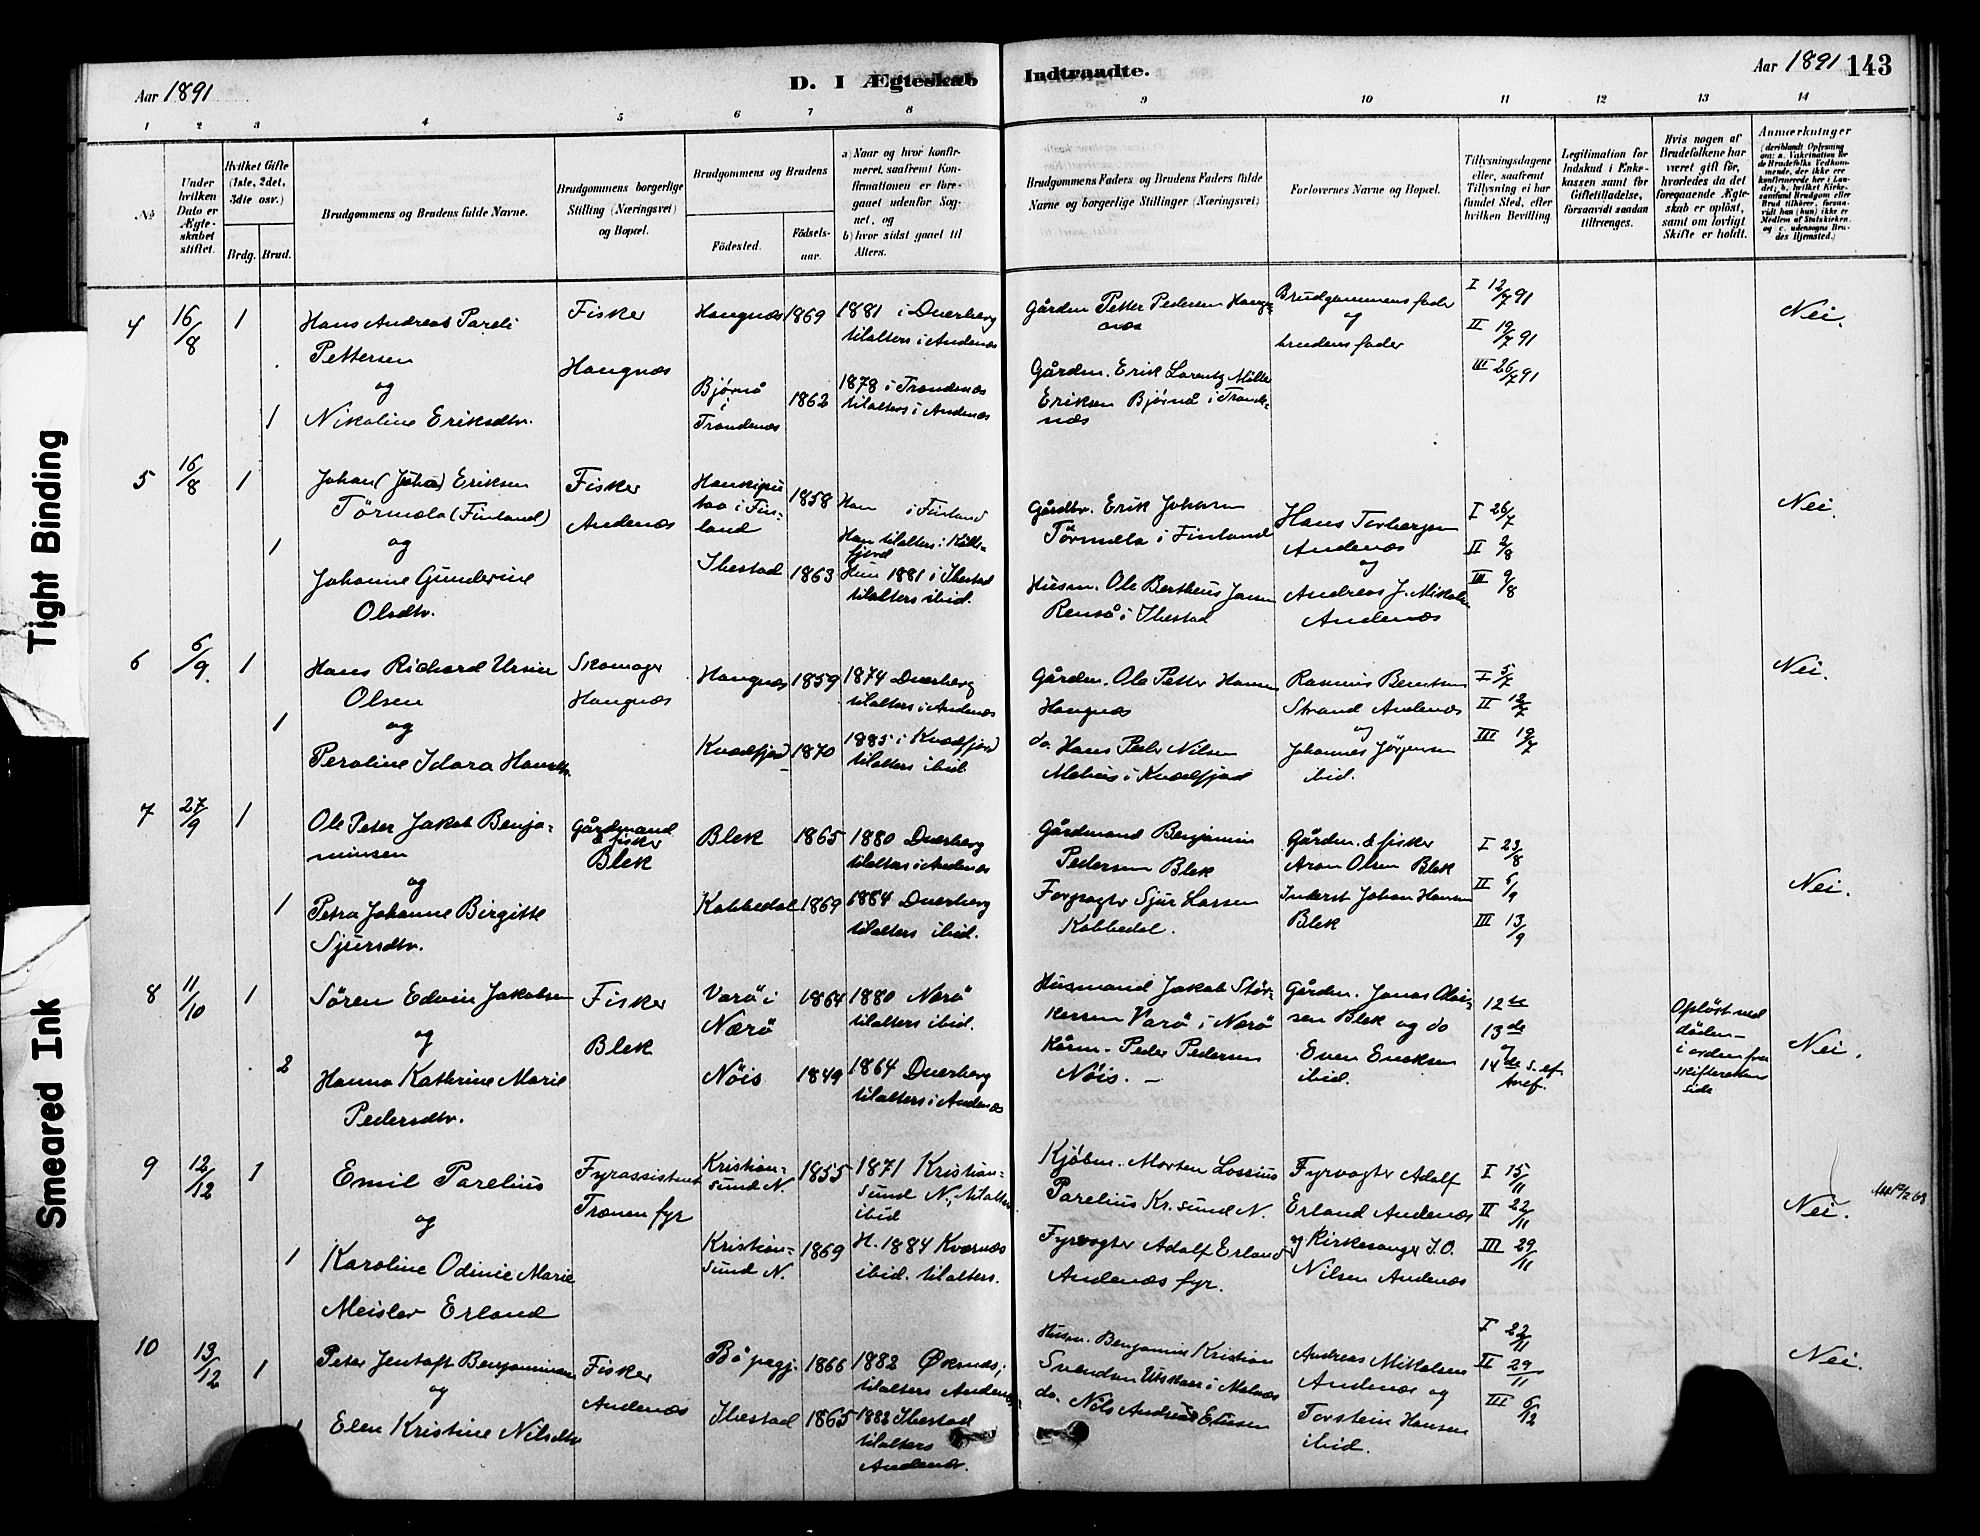 Aar 1891
D. I Ægteskab
Indtraadte.
Aar 1891 143
1 2 3 4 5 6 7 8
9 10 11 12 13 14
No
Under hvilken Dato er Ægteskabet stiftet.
Hvilket Gifte (1ste, 2det, 3die osv.)
Brdg. Brud.
Brudgommens og Brudens fulde Navne.
Brudgommens borgerlige Stilling (Næringsvei) og Bopæl.
Brudgommens og Brudens
Fødested.
Fødselsaar.
a) Naar og hvor konfirmeret, saafremt Konfirmationen er foregaaet udenfor Sognet, og
b) hvor sidst gaaet til Alters.
Brudgommens Faders og Brudens Faders fulde Navne og borgerlige Stillinger (Næringsvei)
Forlovernes Navne og Bopæl.
Tillysningsdagene eller, saafremt Tillysning ei har fundet Sted, efter hvilken Bevilling.
Legitimation for Indskud i Enkekassen samt for Giftetilladelse, forsaavidt saadan tiltrænges.
Hvis nogen af Brudefolkene har været gift før, hvorledes da det foregaaende Ægteskab er opløst, samt om lovligt Skifte er holdt.
Anmærkninger
(deriblandt Oplysning om: a. Vakcination for de Brudefolks Vedkommende, der ikke ere konfirmerede her i Landet; b. hvilket Kirkesamfund Brudgom eller Brud tilhører, forsaavidt han (hun) ikke er Medlem af Statskirken, og c. udensogns Brudes Hjemsted.)
4 16/8 1
Hans Andreas Pareli
Pettersen
og
1 Nikoline Eriksdtr.
Fisker
Haugnæs
Haugnæs 1869
1881 i Dverberg
tilalters i Andenæs
Bjørnå
i
Trondenæs
1862
1878 i Trondenæs
tilalters i Andenæs
Gården Petter Pedersen Haugnæs
Gården. Erik Lorentz Møller
Eriksen Bjørnå i Trondenæs
Brudgommens fader
og
brudens fader
I 12/7 91
II 19/7 91
III 26/7 91
Nei.
5 16/8 1
Johan (Juha) Eriksen
Törmæla (Finland)
og
1 Johanne Gunderine
Olsdtr.
Fisker
Andenæs
Haukipu
taa i Finland
1858
Han i Finland
Han tilalters i
fjord
Ibestad 1863
Hun 1881 i Ibestad
tilalters ibid.
Gårdbr. Erik Johansen
Törmæla i Finland
Husm. Ole Bertheus Jansen
Renså i Ibestad
Hans Torbergsen
Andenæs
og
Andreas J. Mikalsen
Andenæs
I 26/7
II 2/8
III 9/8
Nei.
6 6/9 1
Hans Richard Ursin
Olsen
og
1 Peroline Idara Hansdtr.
Skomager
Haugnæs
Haugnæs 1859
1874 Dverberg
tilalters i Andenæs
Kvædfjord 1870
1885 i Kvædfjord
tilalters ibid.
Gården. Ole Petter Hansen
Haugnæs
do. Hans Peder Nilsen
Melaus i Kvædfjord
Rasmus Berntsen
Strand Andenæs
og
Johannes Jörgensen
ibid.
I 5/7
II 12/7
III 19/7
Nei.
7 27/9 1
Ole Peter Jakob Benja-
minsen
og
1 Petra Johanne Birgitte
Sjursdtr.
Gårdmand
& fisker
Blek
Blek 1865
1880 Dverberg
tilalters i Andenæs
Kobbedal 1869
1884 Dverberg
tilalters ibid.
Gårdmand Benjamin
Pedersen Blek
Forpagter Sjur Larsen
Kobbedal.
Gården. & fisker
Aron Olsen Blek
Inderst Johan Hansen
Blek
I 23/8
II 6/9
III 13/9
Nei.
8 11/10 1
Sören Edvin Jakobsen
og
2 Hanna Kathrine Marie
Pedersdtr.
Fisker
Blek
Varö i
Nærö
1864
1880 Nærö
tilalters ibid.
Nöis 1849
1864 Dverberg
tilalters i Andenæs
Husmand Jakob Stör-
kersen Varö i Nærö
Kårm. Peder Pedersen
Nöis.
Gården. Jonas Olai-
sen Blek og do
Even Evensen
ibid.
12te
13de
og
14de S. ef.
tref.
Oplöst ved
döden –
i orden fra
skifterettens
side
Nei.
9 12/12 1
Emil Parelius
og
1 Karoline Odinie Marie
Meisler Erland
Fyrassistent
Tranen fyr
Kristian-
sund N.
1855
1871 Kristian-
sund N., tilalters
ibid
Kristian-
sund N.
1869
H. 1884 Kværnæs
ibid. tilalters.
Kjöbm. Morten Lossius
Parelius Kr.sund N.
Fyrvogter Adolf Erland
Andenæs fyr.
Fyrvogter Adolf
Erland Andenæs
og Kirkesanger J. O.
Nilsen Andenæs
I 15/11
II 22/11
III 29/11
Nei.
10 13/12 1
Peter Jentoft Benjaminsen
og
1 Elen Kristine Nilsdtr
Fisker
Andenæs
Bö prgj. 1866
1882 Øksnæs;
tilalters Andenæs
Ibestad 1865
1882 Ibestad
tilalters
Andenæs.
Husm. Benjamin Kristian
Svendsen Utskaar i Malnæs
do. Nils Andreas Elisen
Andreas Mikalsen
Andenæs og
Torstein Hansen
ibid.
I 22/11
II 29/11
III 6/12
Nei.
Tight Binding
Smeared Ink